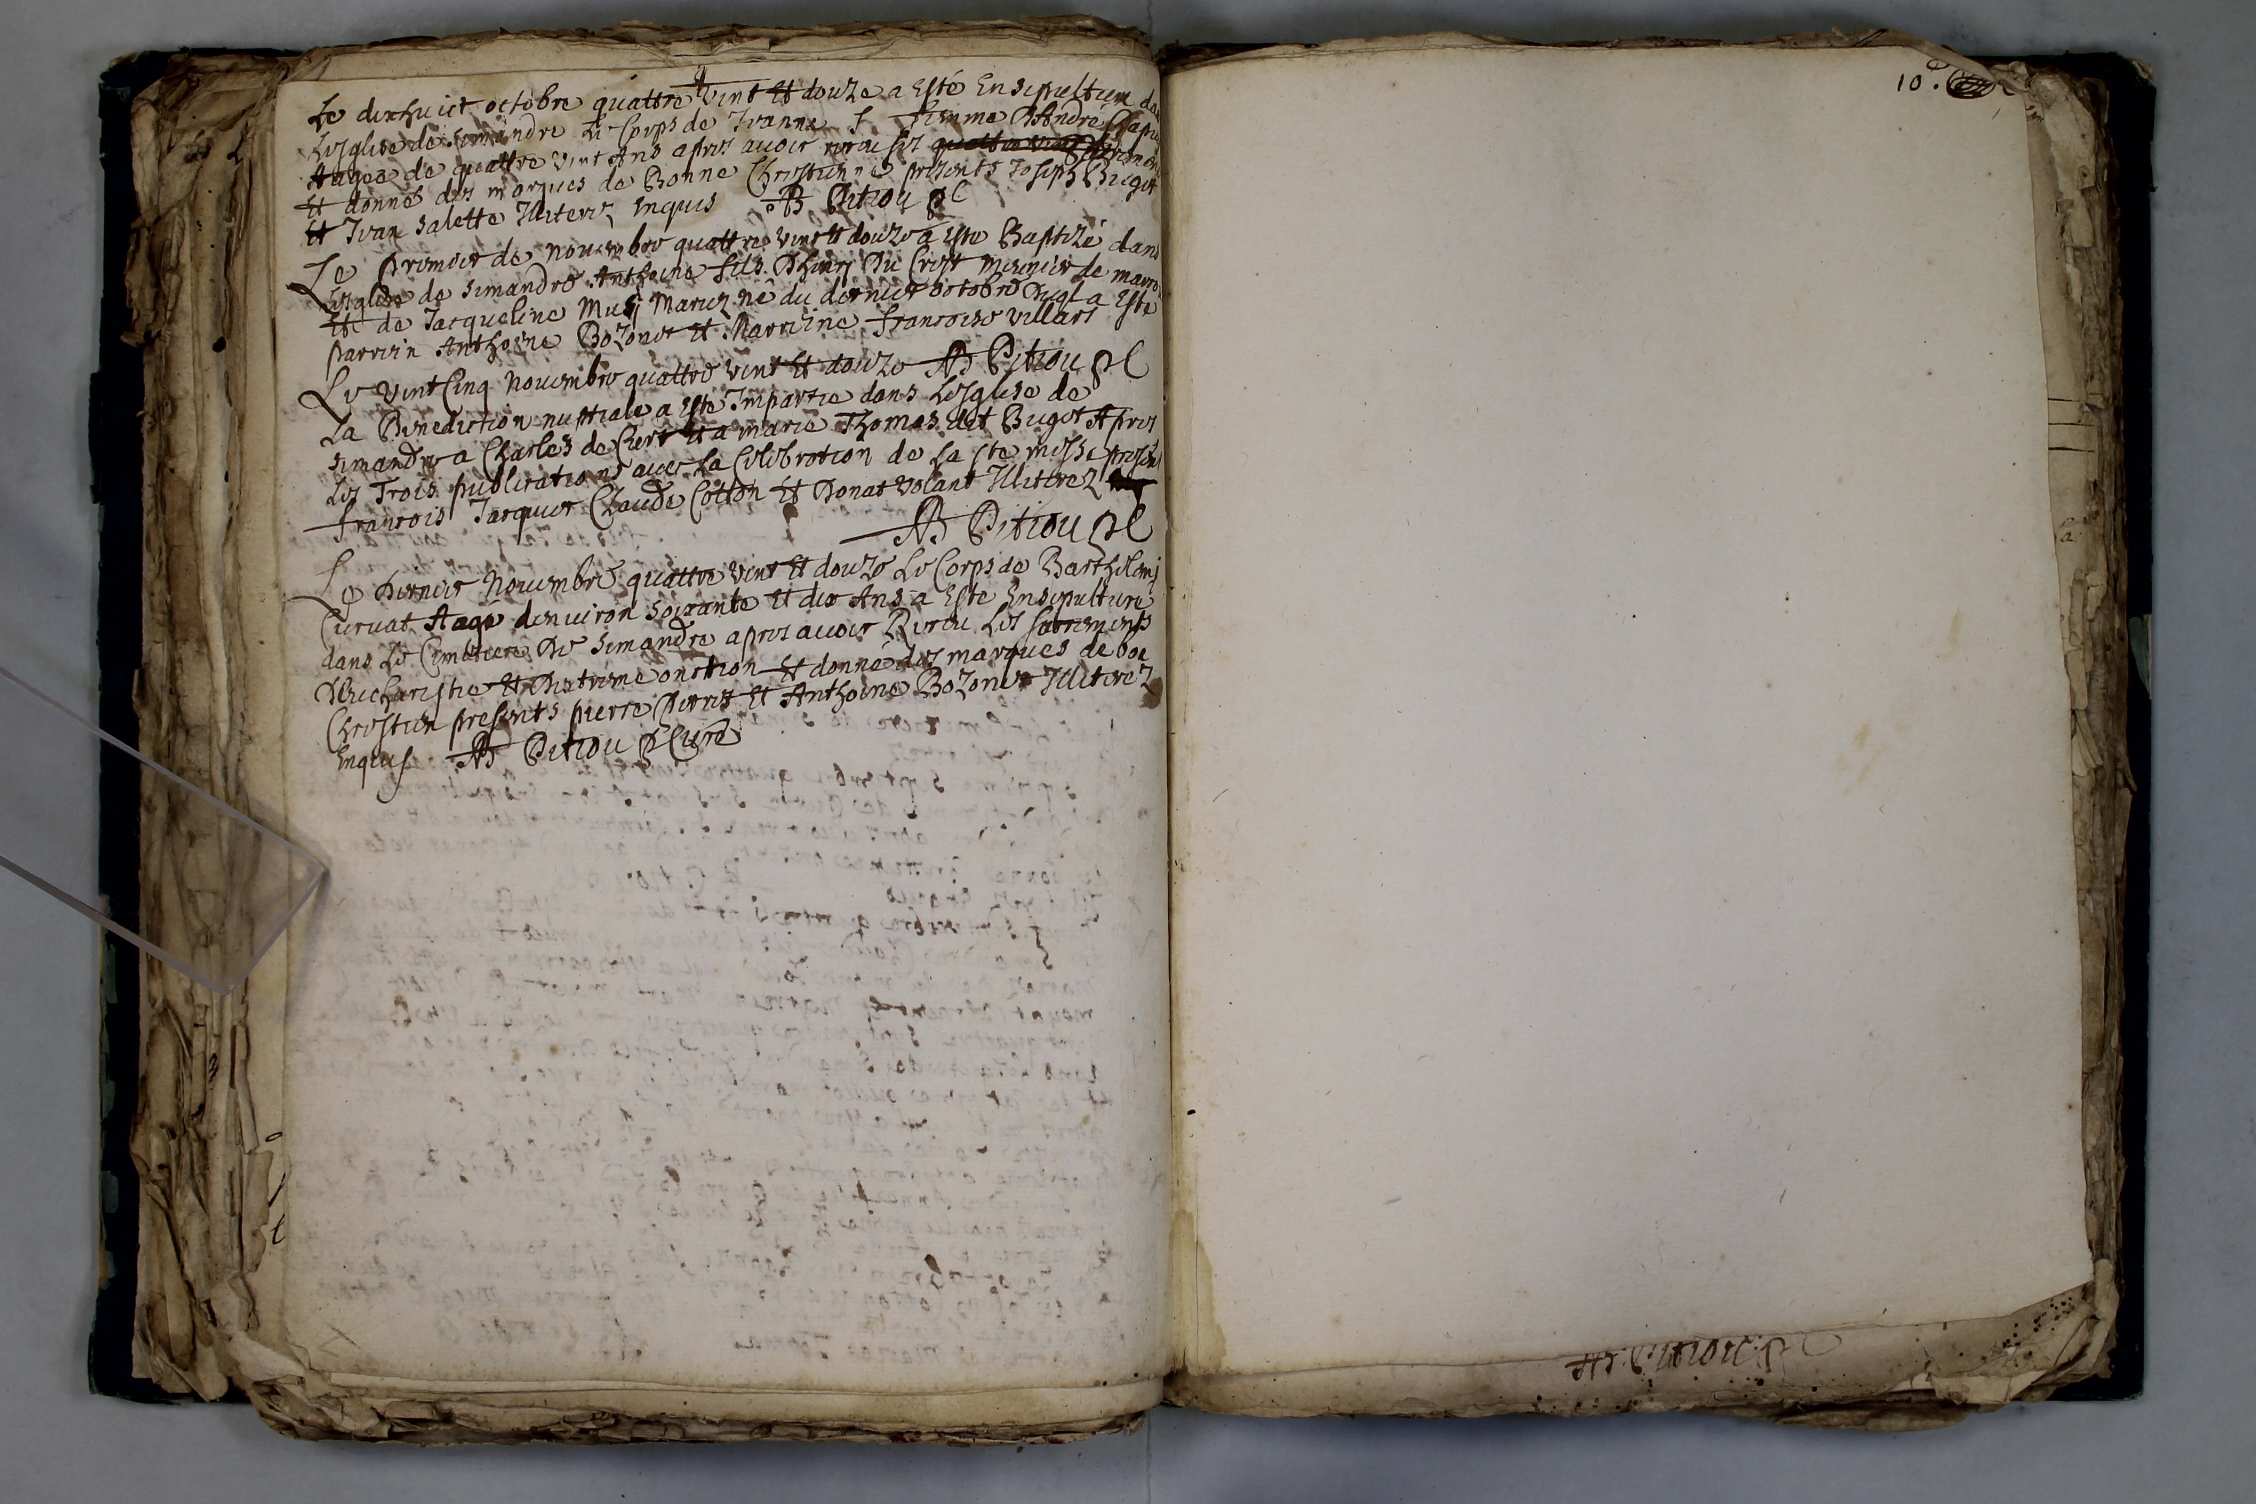 Le dixhuict octobre quattre vint Et douze a Esté Ensepulture da
Lesglise de simandre Le Corps de Jeanne f femme D'André Chapu
Aagee de quattre vint Ans apres auoir receu les quattre vint
Et donné des marques de Bonne Chrestienne presents Joseph Bugot
Et Jean Salette Illiterez Enquis AB Pitiou p C
Le premier de nouembre quattre vint Et douze a Este Baptizé dans
Lesglise de simandre Anthoine fils Dhenrj Du Crest meunier de
Et de Jacqueline Musj Mariez né du dernier octobre Duql a Este
parrein Anthoine Bozoner Et Marreine francoise villars
AB Pitiou p C
Le vint Cinq nouembre quattre vint Et douze
La Benediction nuptiale a Este Impartie dans Lesglise de
simandre a Charles de Chert Et a marie Thomas dit Bugot Apres
Les Trois publications auec La Celebration de La ste messe presents
francois Jacquier Claude Cotton Et Donat Volant Illiterez
AB Pitiou p C
Le Dernier Nouembre quattre vint Et douze Le Corps de Barthelemj
Curuat Aagé denuiron soixante Et dix Ans a Este Ensepulture
dans Le Cimetiere De simandre apres auoir Receu Les sacrements
DEucharistie Et Dextreme onction Et donné des marques de bon
Chrestien presents pierre Perret Et Anthoine Bozoner Illiterez
Enquis AB Pitiou p Curé
10e